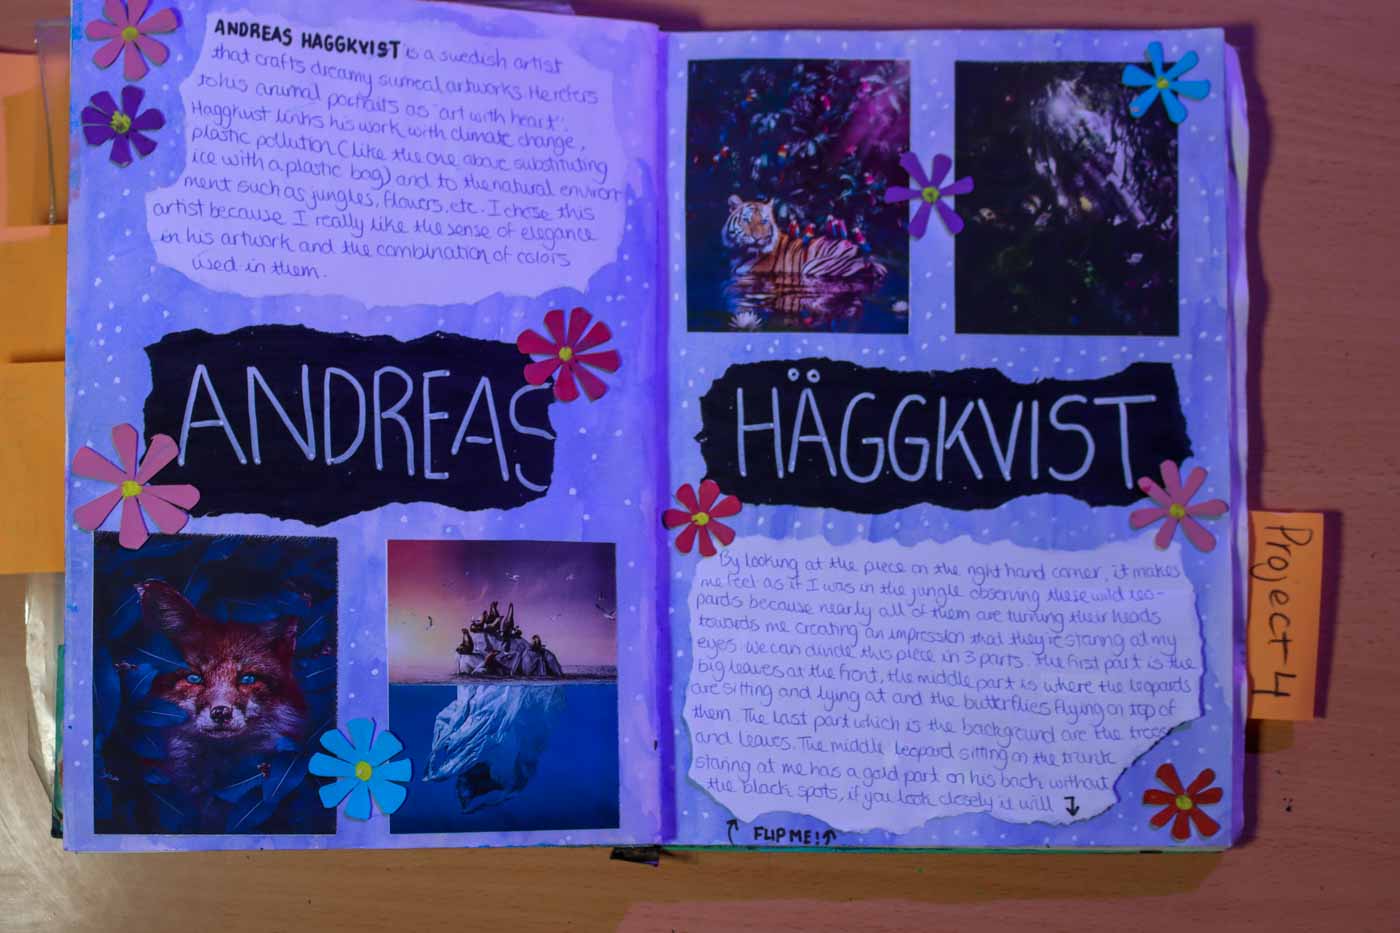 ANDREAS HAGGKVIST is a swedish artist
that crafts dreamy surreal artworks. He refers
to his animal portraits as "art with heart".
Haggkvist links his work with climate change,
plastic pollution (like the one above substituting
ice with a plastic bag) and to the natural environ-
ment such as jungles, flowers, etc. I chose this
artist because I really like the sense of elegance
in his artwork and the combination of colors
used in them.
ANDREAS
HÄGGKVIST
By looking at the piece on the right hand corner, it makes
me feel as if I was in the jungle observing these wild leo-
pards because nearly all of them are turning their heads
towards me creating an impression that they're staring at my
eyes. We can divide this piece in 3 parts. The first part is the
big leaves at the front, the middle part is where the leopards
are sitting and lying at and the butterflies flying on top of
them. The last part which is the background are the trees
and leaves. The middle leopard sitting on the trunk
staring at me has a gold part on his back without
the black spots, if you look closely it will
FLIP ME!
Project 4